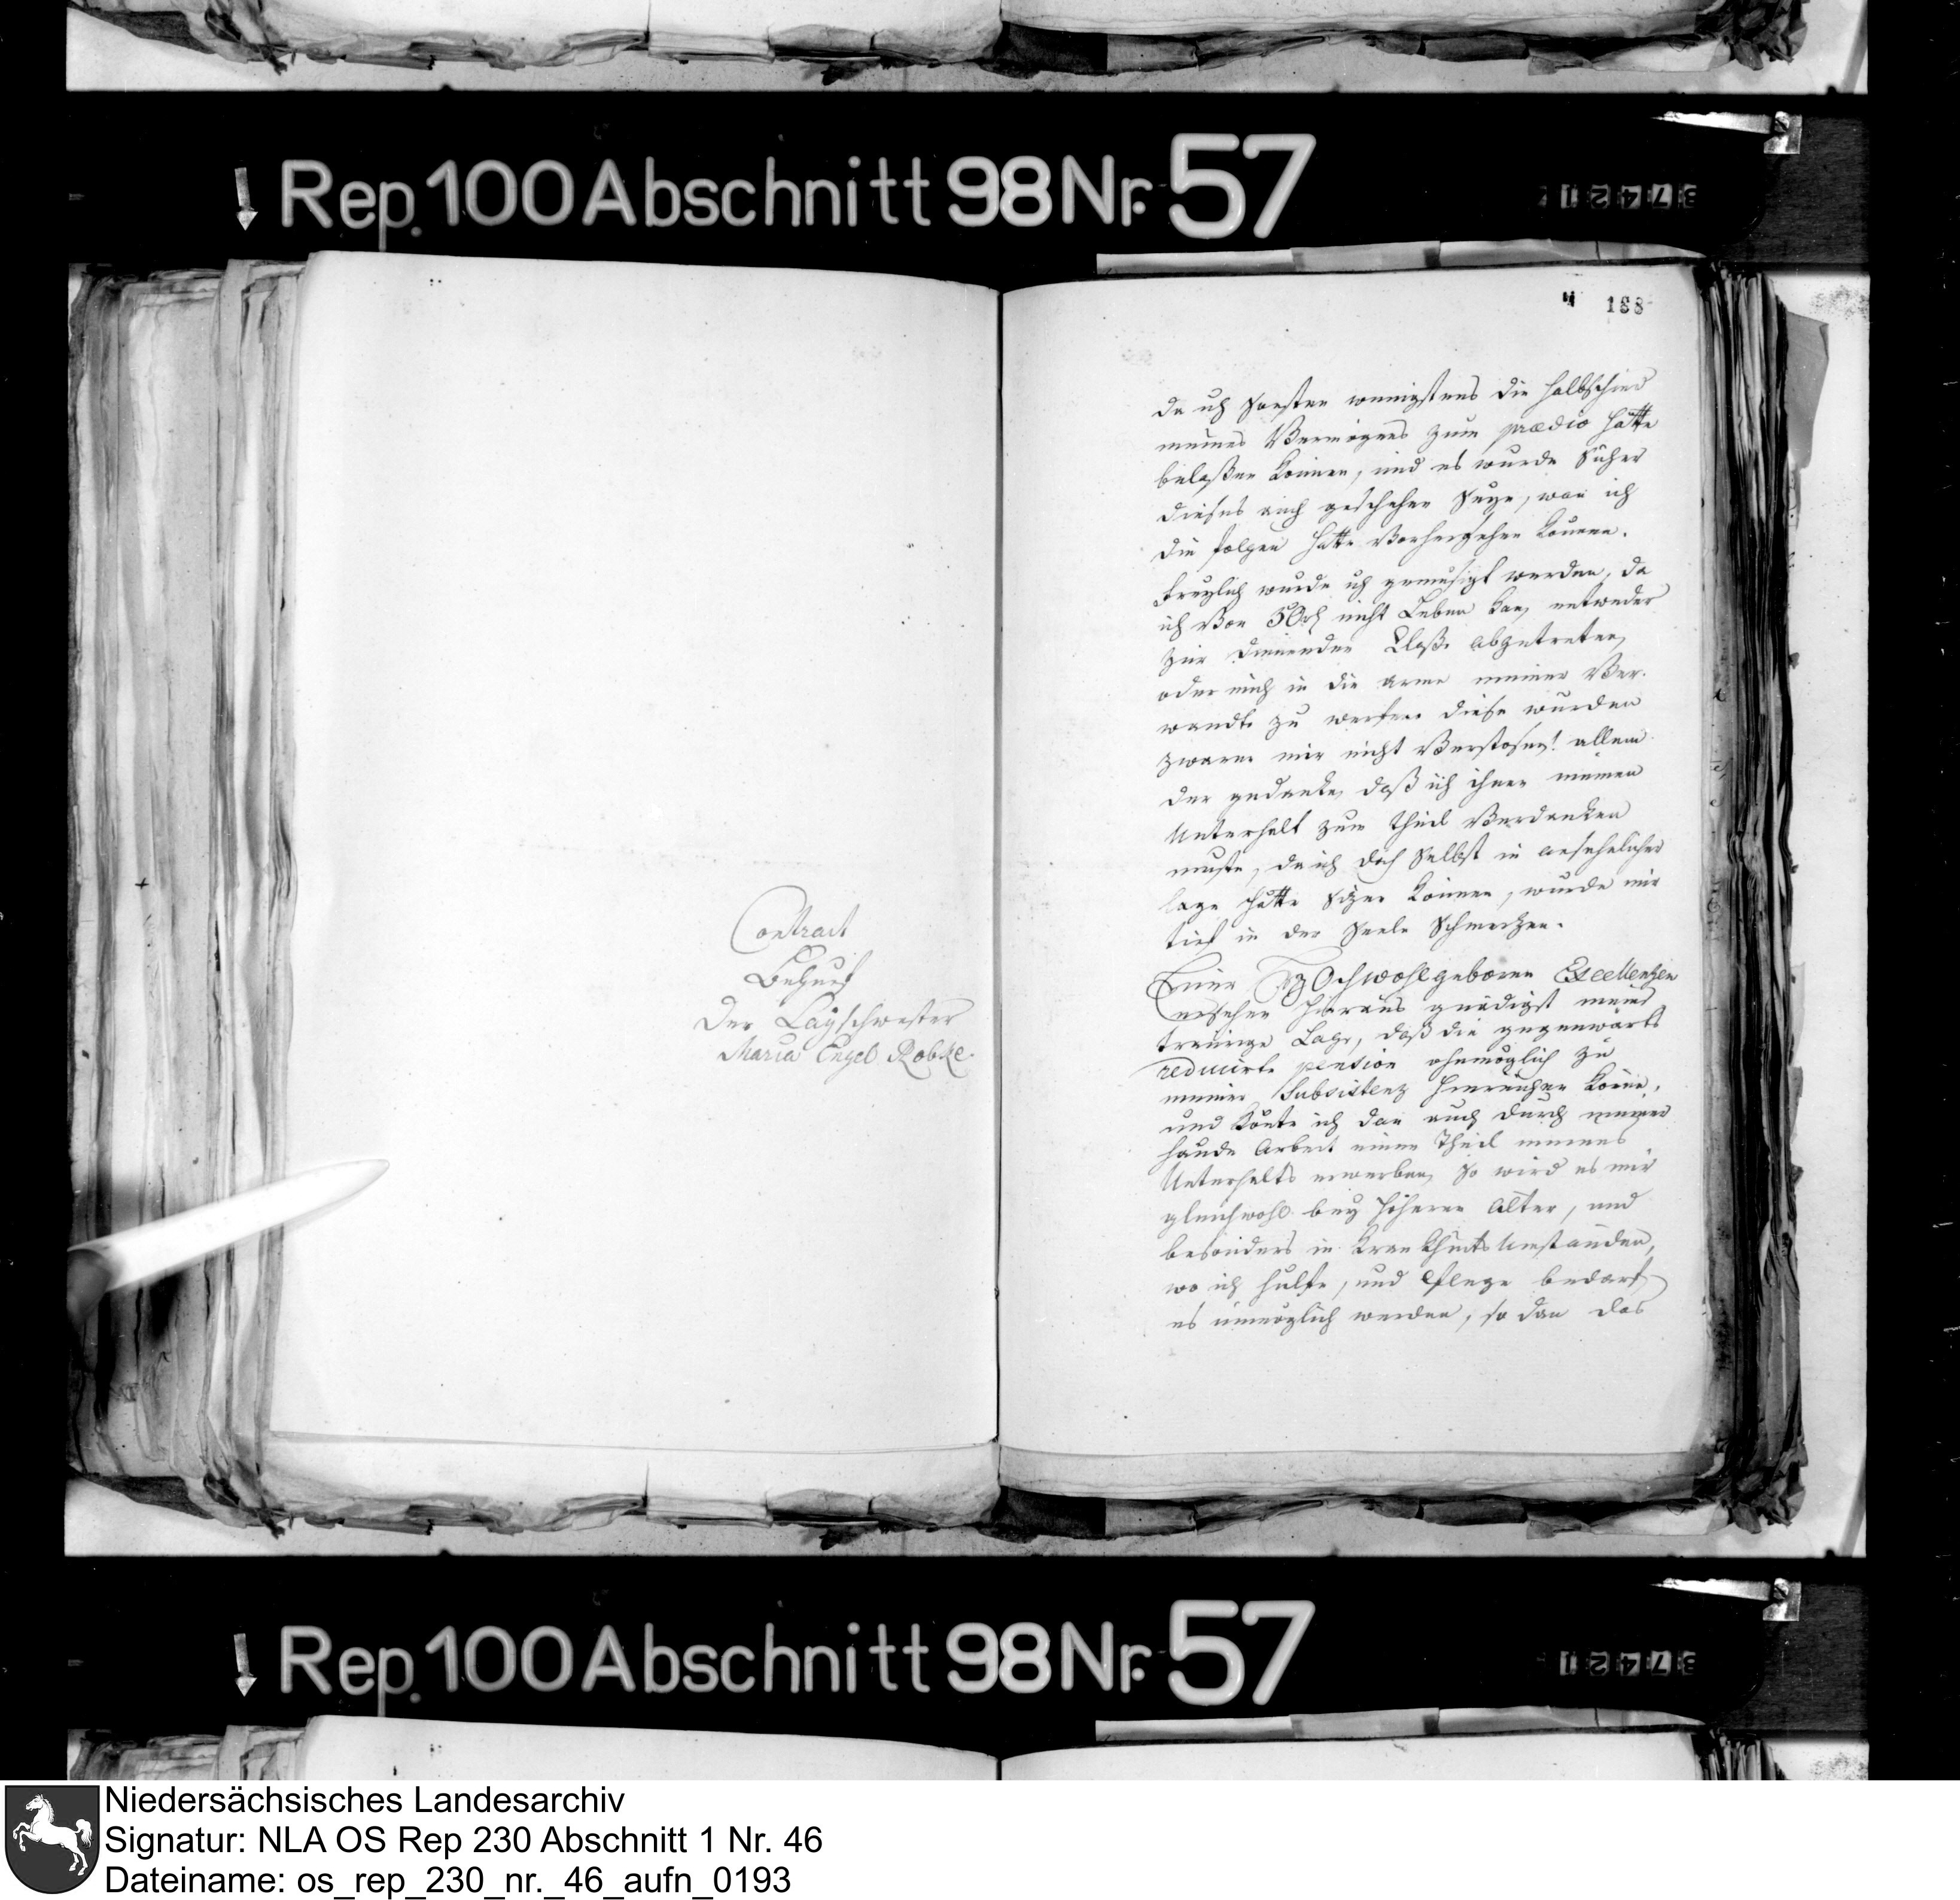 Rep. 100 Abschnitt 98 Nr. 57
37421
Contract
Behuef
Der Layschwester
Maria Engel Robke.
188
da ich sonsten wenigstens die halbschied
meines Vermögens zum prædio hätte
belaßen können, und es wurde sicher
dieses auch geschehen seyn, wan ich
die folgen hätte Vorhersehen können.
freylich wurde ich gemüsigt werden, da
ich Von 50 rh nicht Leben kan, entweder
zur dienenden Claße abzutreten,
oder mich in die arme meiner Ver-
wandte zu werfen diese wurden
zwarn mir nicht Verstosen! allein
der gedanke, daß ich ihnen meinen
Unterhalt zum theil Verdanken
muste, da ich doch selbst in ansehnlicher
lage hätte sizen können, wurde mir
tief in der Seele Schmerzen.
Euer Hochwohlgeboren Excellenzen
ersehen hieraus gnädigst meine
traurige Lage, daß die gegenwärts
reducirte pension ohnmöglich zu
meiner Subsistenz hinreichen könne,
und könte ich dan auch durch meiner
hände Arbeit einen Theil meines
Unterhalts erwerben, so wird es mir
gleichwohl bey höherem Alter, und
besonders in Krankheits Umständen,
wo ich hulfe, und Pflege bedarf,
es unmöglich werden, so dan das
Rep. 100 Abschnitt 98 Nr. 57
37421
Niedersächsisches Landesarchiv
Signatur: NLA OS Rep 230 Abschnitt 1 Nr. 46
Dateiname: os_rep_230_nr._46_aufn_0193